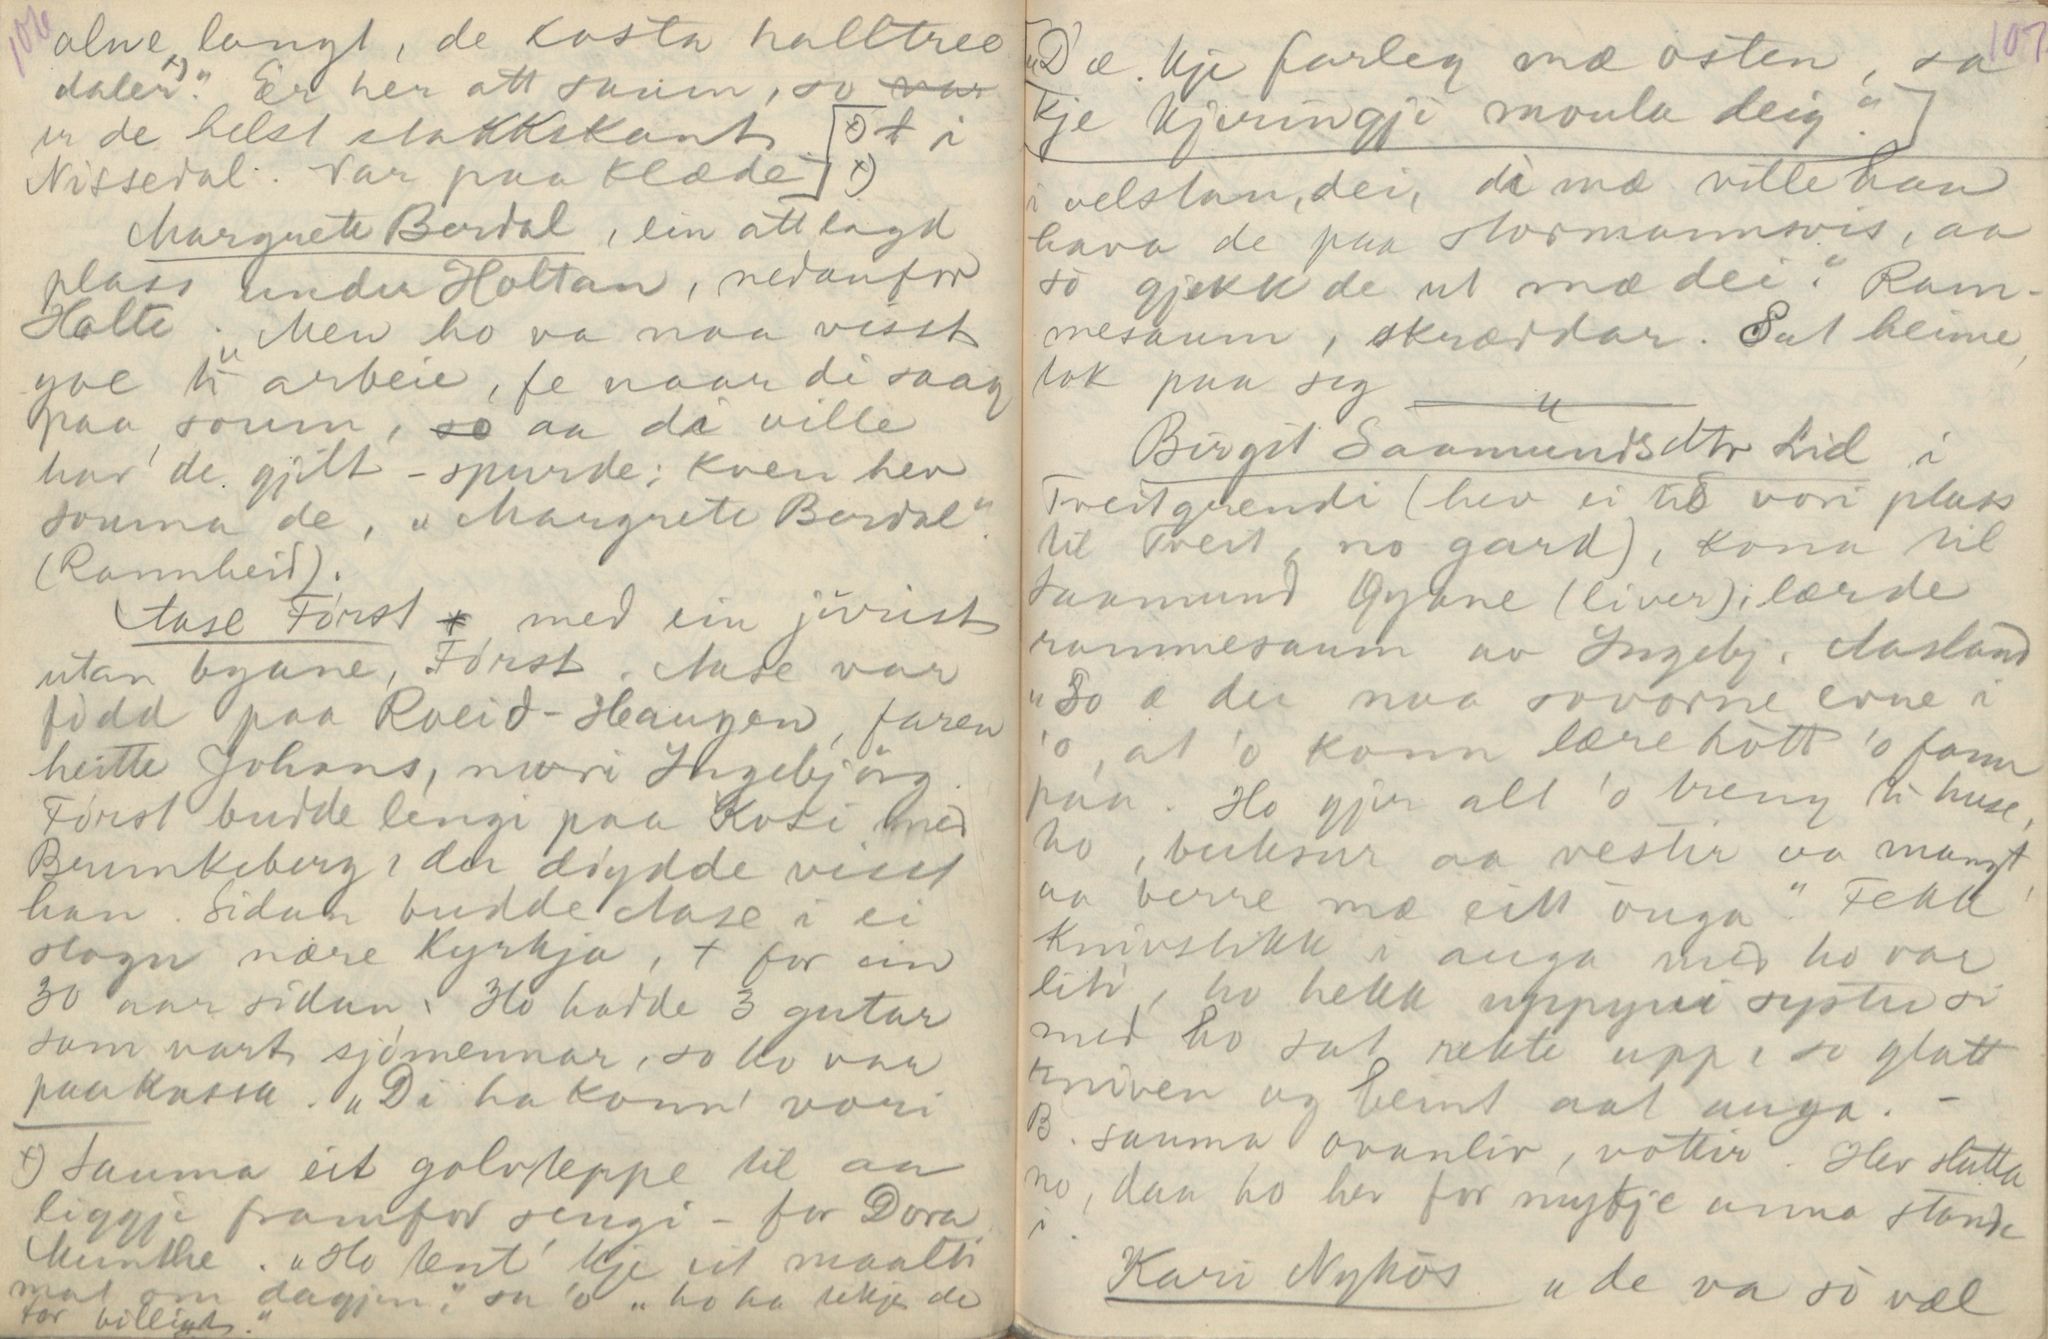 106
alne langt, de kosta halltree
daler x)." Er her att saum, so var
er de helst stakkskant [x) † i
Nissedal. Var paa klæde] x)
Margrete Berdal, ein attlagd
plass under Holtan, nedanfor
Holte. "Men ho va naa visst
goe ti arbeie, fe naar di saag
paa soum, so aa di ville
hav' de gjilt - spurde: Kven hev
souma de, "Margrete Berdal".
(Rannheid).
Aase Först * med ein jurist
utan byane, Först. Aase var
född paa Roeid-Haugen, faren
heitte Johans, mori Ingebjörg.
Först budde lengi paa Kosi med
Brunkeberg, der döydde visst
han. Sidan budde Aase i ei
stogu nære Kyrkja, † for ein
30 aar sidan. Ho hadde 3 gutar
som vart sjömennar, so ho var
paa kassa. "Di ha konn' vori
x) Sauma eit golvteppe til aa
liggje framfor sengi - for Dora
Munthe. "Ho tent' kje eit maalti
mat om dagjen," sa 'o "ho ha tikje de
for billigt."
107
["D' æ kje farleg mæ osten, sa
kje kjeringji moula deig."]
i velstan, dei, di mæ ville han
hava de paa stormannsvis, aa
so gjekk de ut mæ dei." Ram-
mesaum, skræddar. Sat heime,
tok paa seg
Birgit Saamundsdtr Lid i
Treitgrendi (hev ei tid vori plass
til Treit, no gard), kona til
Saamund Öyane (liver); lærde
rammesaum av Ingebj. Aasland
"So æ dei naa sovorne evne i
'o, at 'o konn lære hött 'o fann
paa. Ho gjer alt 'o treng ti huse,
ho, buksur aa vestir aa mangt,
aa berre mæ eitt ouga". Fekk
knivstikk i auga med ho var
liti, ho hekk uppyvi syster si
med ho sat rekte upp, so glatt
kniven og beint aat auga. -
B. sauma ovanliv, vottir. Hev slutta
no, daa ho hev for mykje anna stande
i.
Kari Nykös "de va so væl